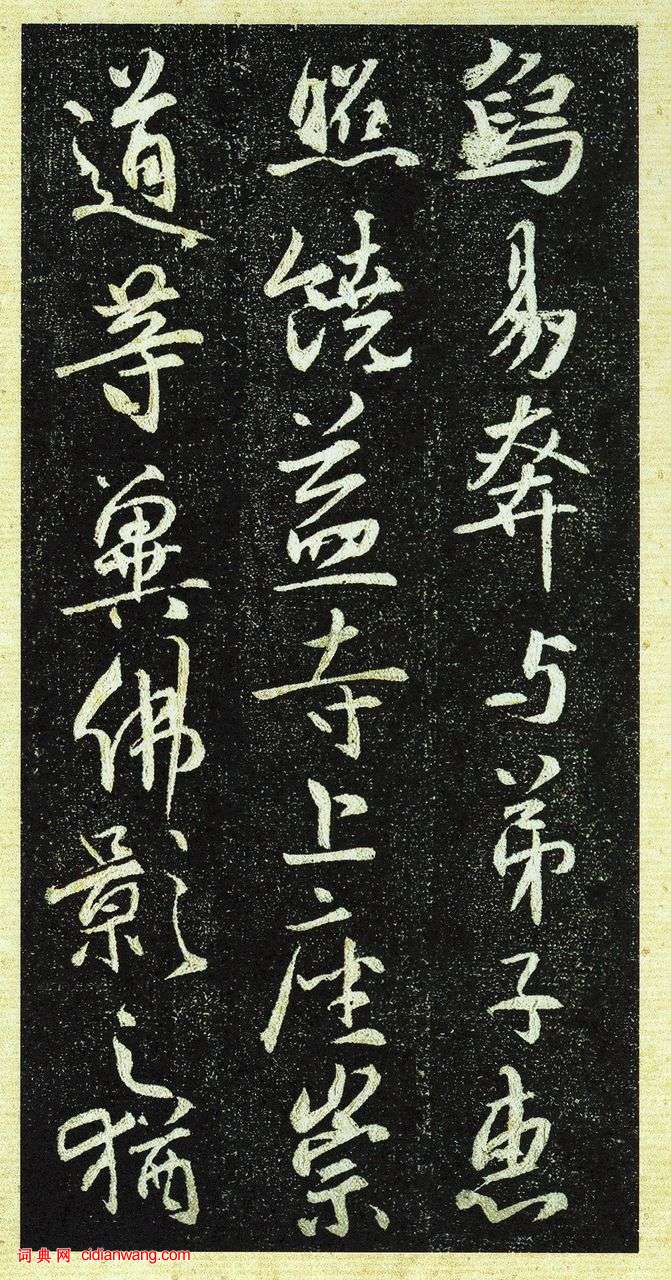 烏易奔与弟子惠
照饒益寺上座崇
道等冀佛影之猶
词典网 cidianwang.com